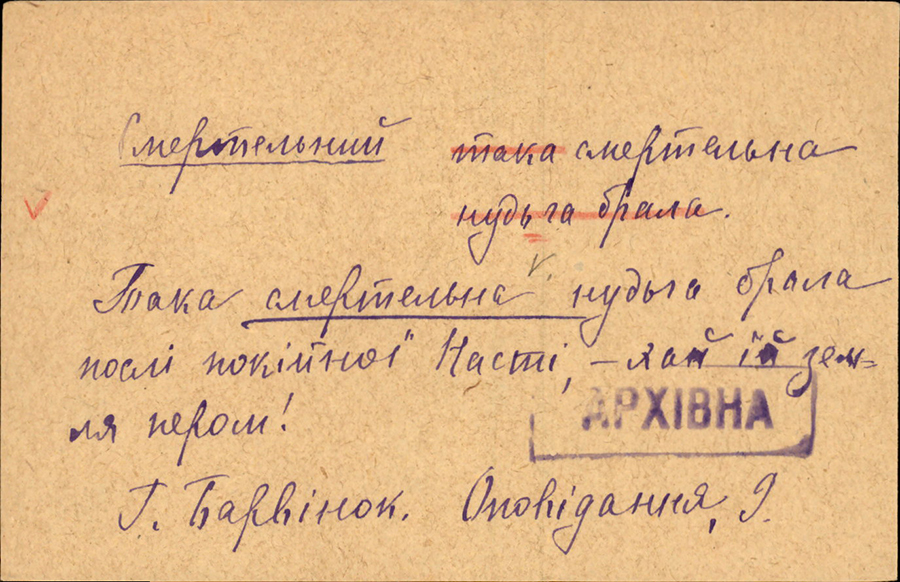 Смертельний така смертельна
нудьга брала.
Така смертельна нудьга брала
послі покійної Насті, – хай їй зем=
ля пером!
АРХІВНА
Г. Барвінок. Оповідання, 9.